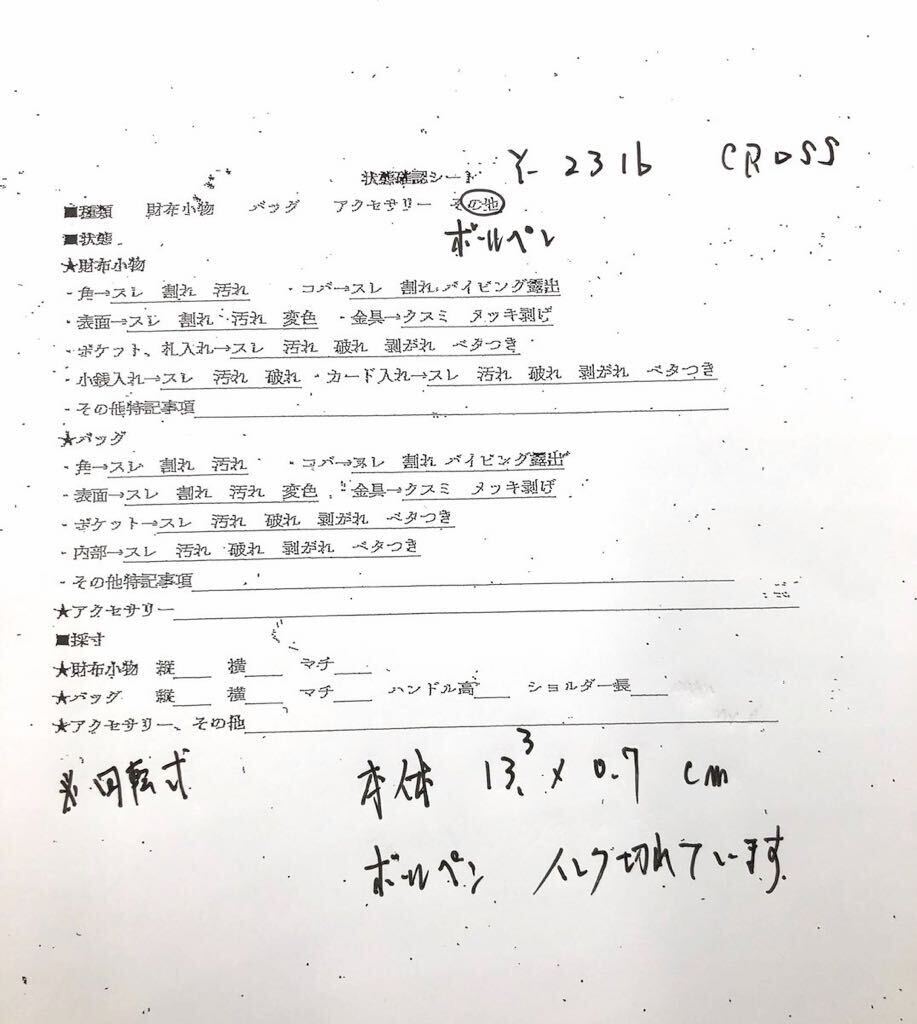 状態確認シート Y-2316 CROSS
■種類 財布小物 バッグ アクセサリー その他
ボールペン
■状態
★財布小物
・角→スレ 割れ 汚れ ・コバ→スレ 割れ パイピング露出
・表面→スレ 割れ 汚れ 変色 ・金具→クスミ メッキ剥げ
・ポケット、札入れ→スレ 汚れ 破れ 剥がれ ベタつき
・小銭入れ→スレ 汚れ 破れ ・カード入れ→スレ 汚れ 破れ 剥がれ ベタつき
・その他特記事項
★バッグ
・角→スレ 割れ 汚れ ・コバ→スレ 割れ パイピング露出
・表面→スレ 割れ 汚れ 変色 ・金具→クスミ メッキ剥げ
・ポケット→スレ 汚れ 破れ 剥がれ ベタつき
・内部→スレ 汚れ 破れ 剥がれ ベタつき
・その他特記事項
★アクセサリー
■採寸
★財布小物 縦 横 マチ
★バッグ 縦 横 マチ ハンドル高 ショルダー長
★アクセサリー、その他
※回転式 本体 13.3 × 0.7 cm
ボールペン インク切れています